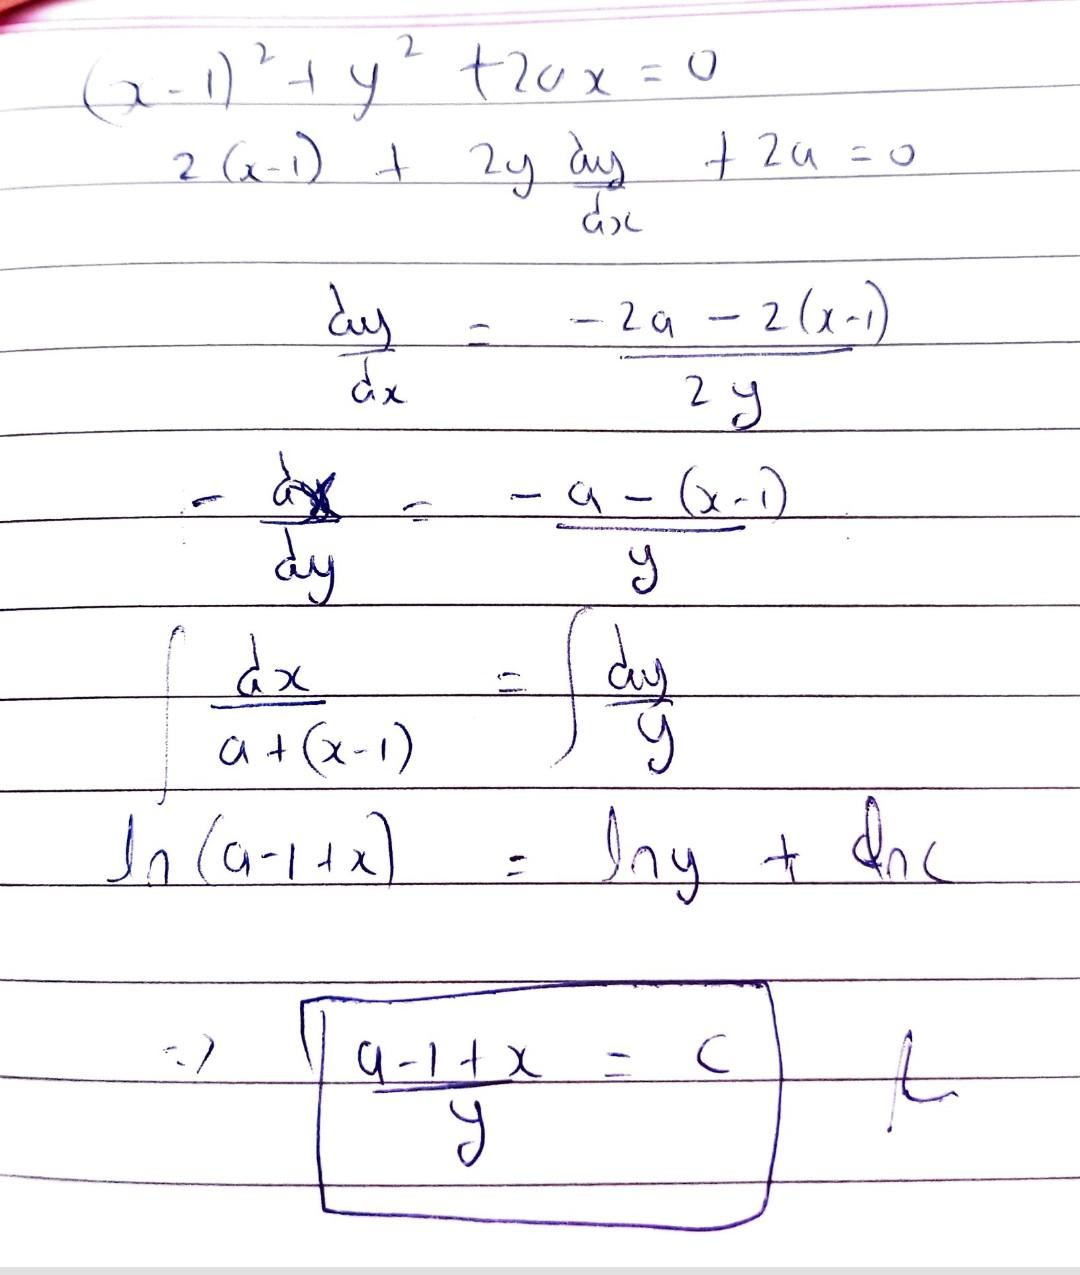 (x-1)² + y² + 2ax = 0
2(x-1) + 2y dy/dx + 2a = 0
dy/dx = (-2a - 2(x-1))/2y
- dx/dy = (-a - (x-1))/y
∫ dx/(a+(x-1)) = ∫ dy/y
ln(a-1+x) = ln y + ln c
=> (a-1+x)/y = c